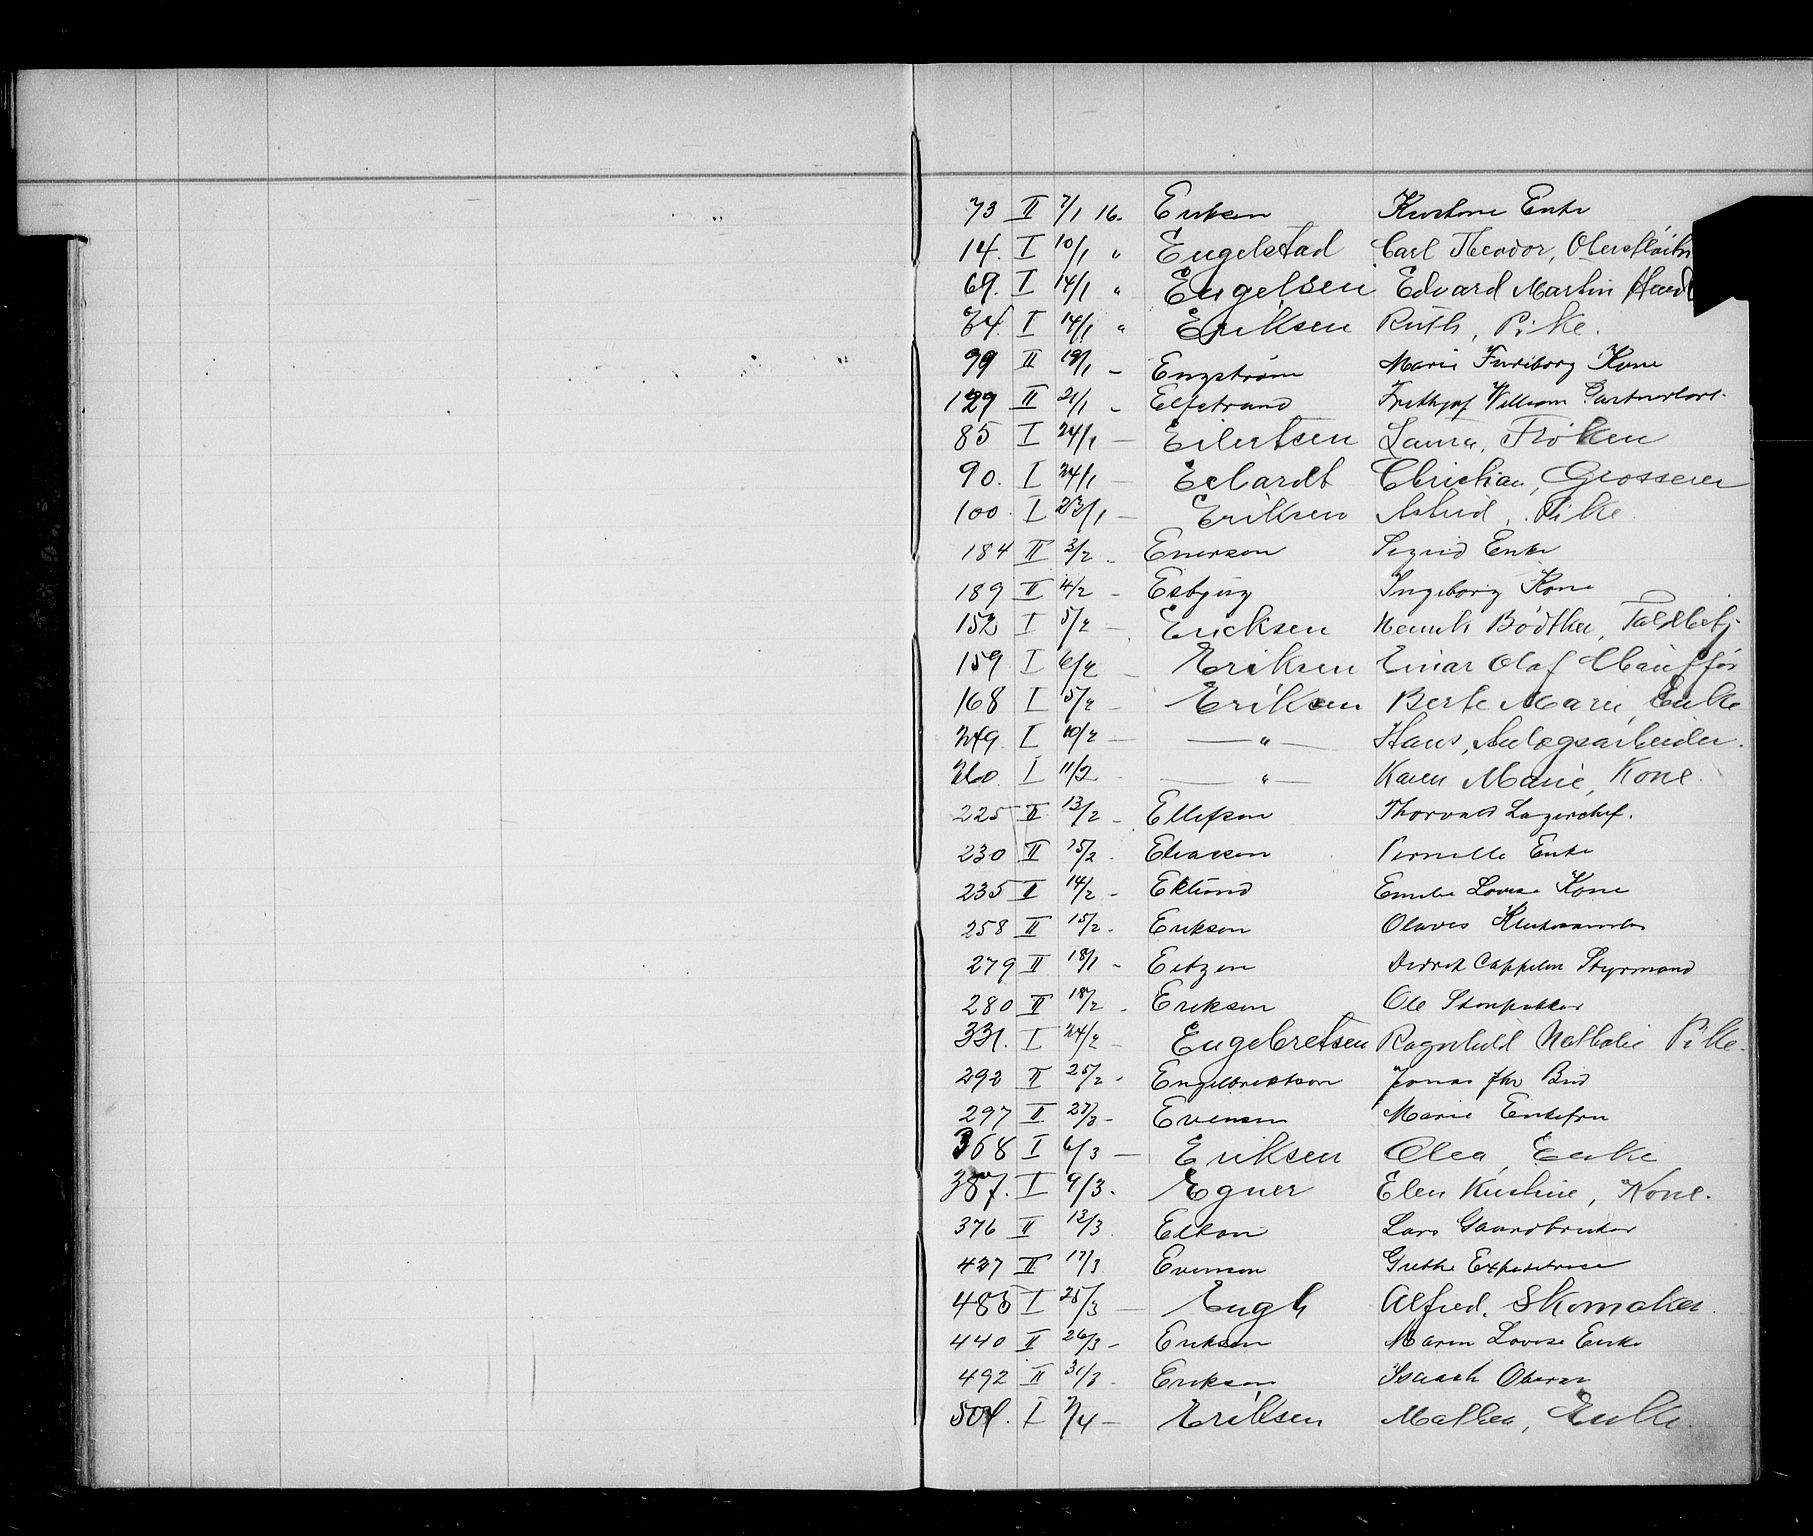 73 II 7/1 16. Eriksen Kirstine Enke
14. I 10/1 " Engelstad Carl Theodor, Oberstløitn
69. I 14/1 " Engelsen Edvard Martin Hand
74. I 14/1 " Eriksen Ruth, Pike.
99 II 19/1 - Engstrøm Marie Frediborg Kone
129 II 21/1 - Elfstrand Frithjof William
85 I 24/1 — Eilertsen Laura, Frøken
90. I 24/1 — Eckardt Christian, Grosserer
100. I 23/1 — Eriksen Astrid, Pike
184 II 3/2 - Enersen Sigrid Enke
189 II 4/2 - Esbjug Ingeborg Kone
152 I 5/2 — Ericksen Henrik Bødtker, Toldbetj.
159 I 6/2 — Eriksen Einar Olaf Chauffør
168 I 5/2 — Eriksen Berte Marie, Enke
249 I 10/2 — — " — Hans, Anlægsarbeider.
260 I 11/2 — " — Karen Marie, Kone.
225 II 13/2 - Ellefsen Thorvald Lagerchef.
230 II 15/2 - Eliassen Pernille Enke
235 II 14/2 - Eklund Emelie Lovise Kone
258 II 15/2 - Eriksen Olaves
279 II 18/1 - Eitzen Didrik Cappelen Styrmand
280 II 18/2 - Eriksen Ole Stenpukker
331. I 24/2 — Engebretsen Ragnhild Nathalie Pike.
292 II 25/2 - Engelbriktson Jonas Jhr Bud
297 II 27/3 - Evensen Marie Enkefru
368 I 6/3 — Eriksen Olea, Enke
387. I 9/3. Egner Elen Kristine, Kone.
376 II 13/3 Elton Lars Gaardbruker
427 II 17/3 Evensen Grethe Expeditrise
485 I 25/3 — Engh Alfred, Skomaker.
440 II 26/3 - Eriksen Maren Lovise Enke
492 II 31/3 - Eriksen Isaach
504. I 2/4 — Eriksen Mathea, Enke